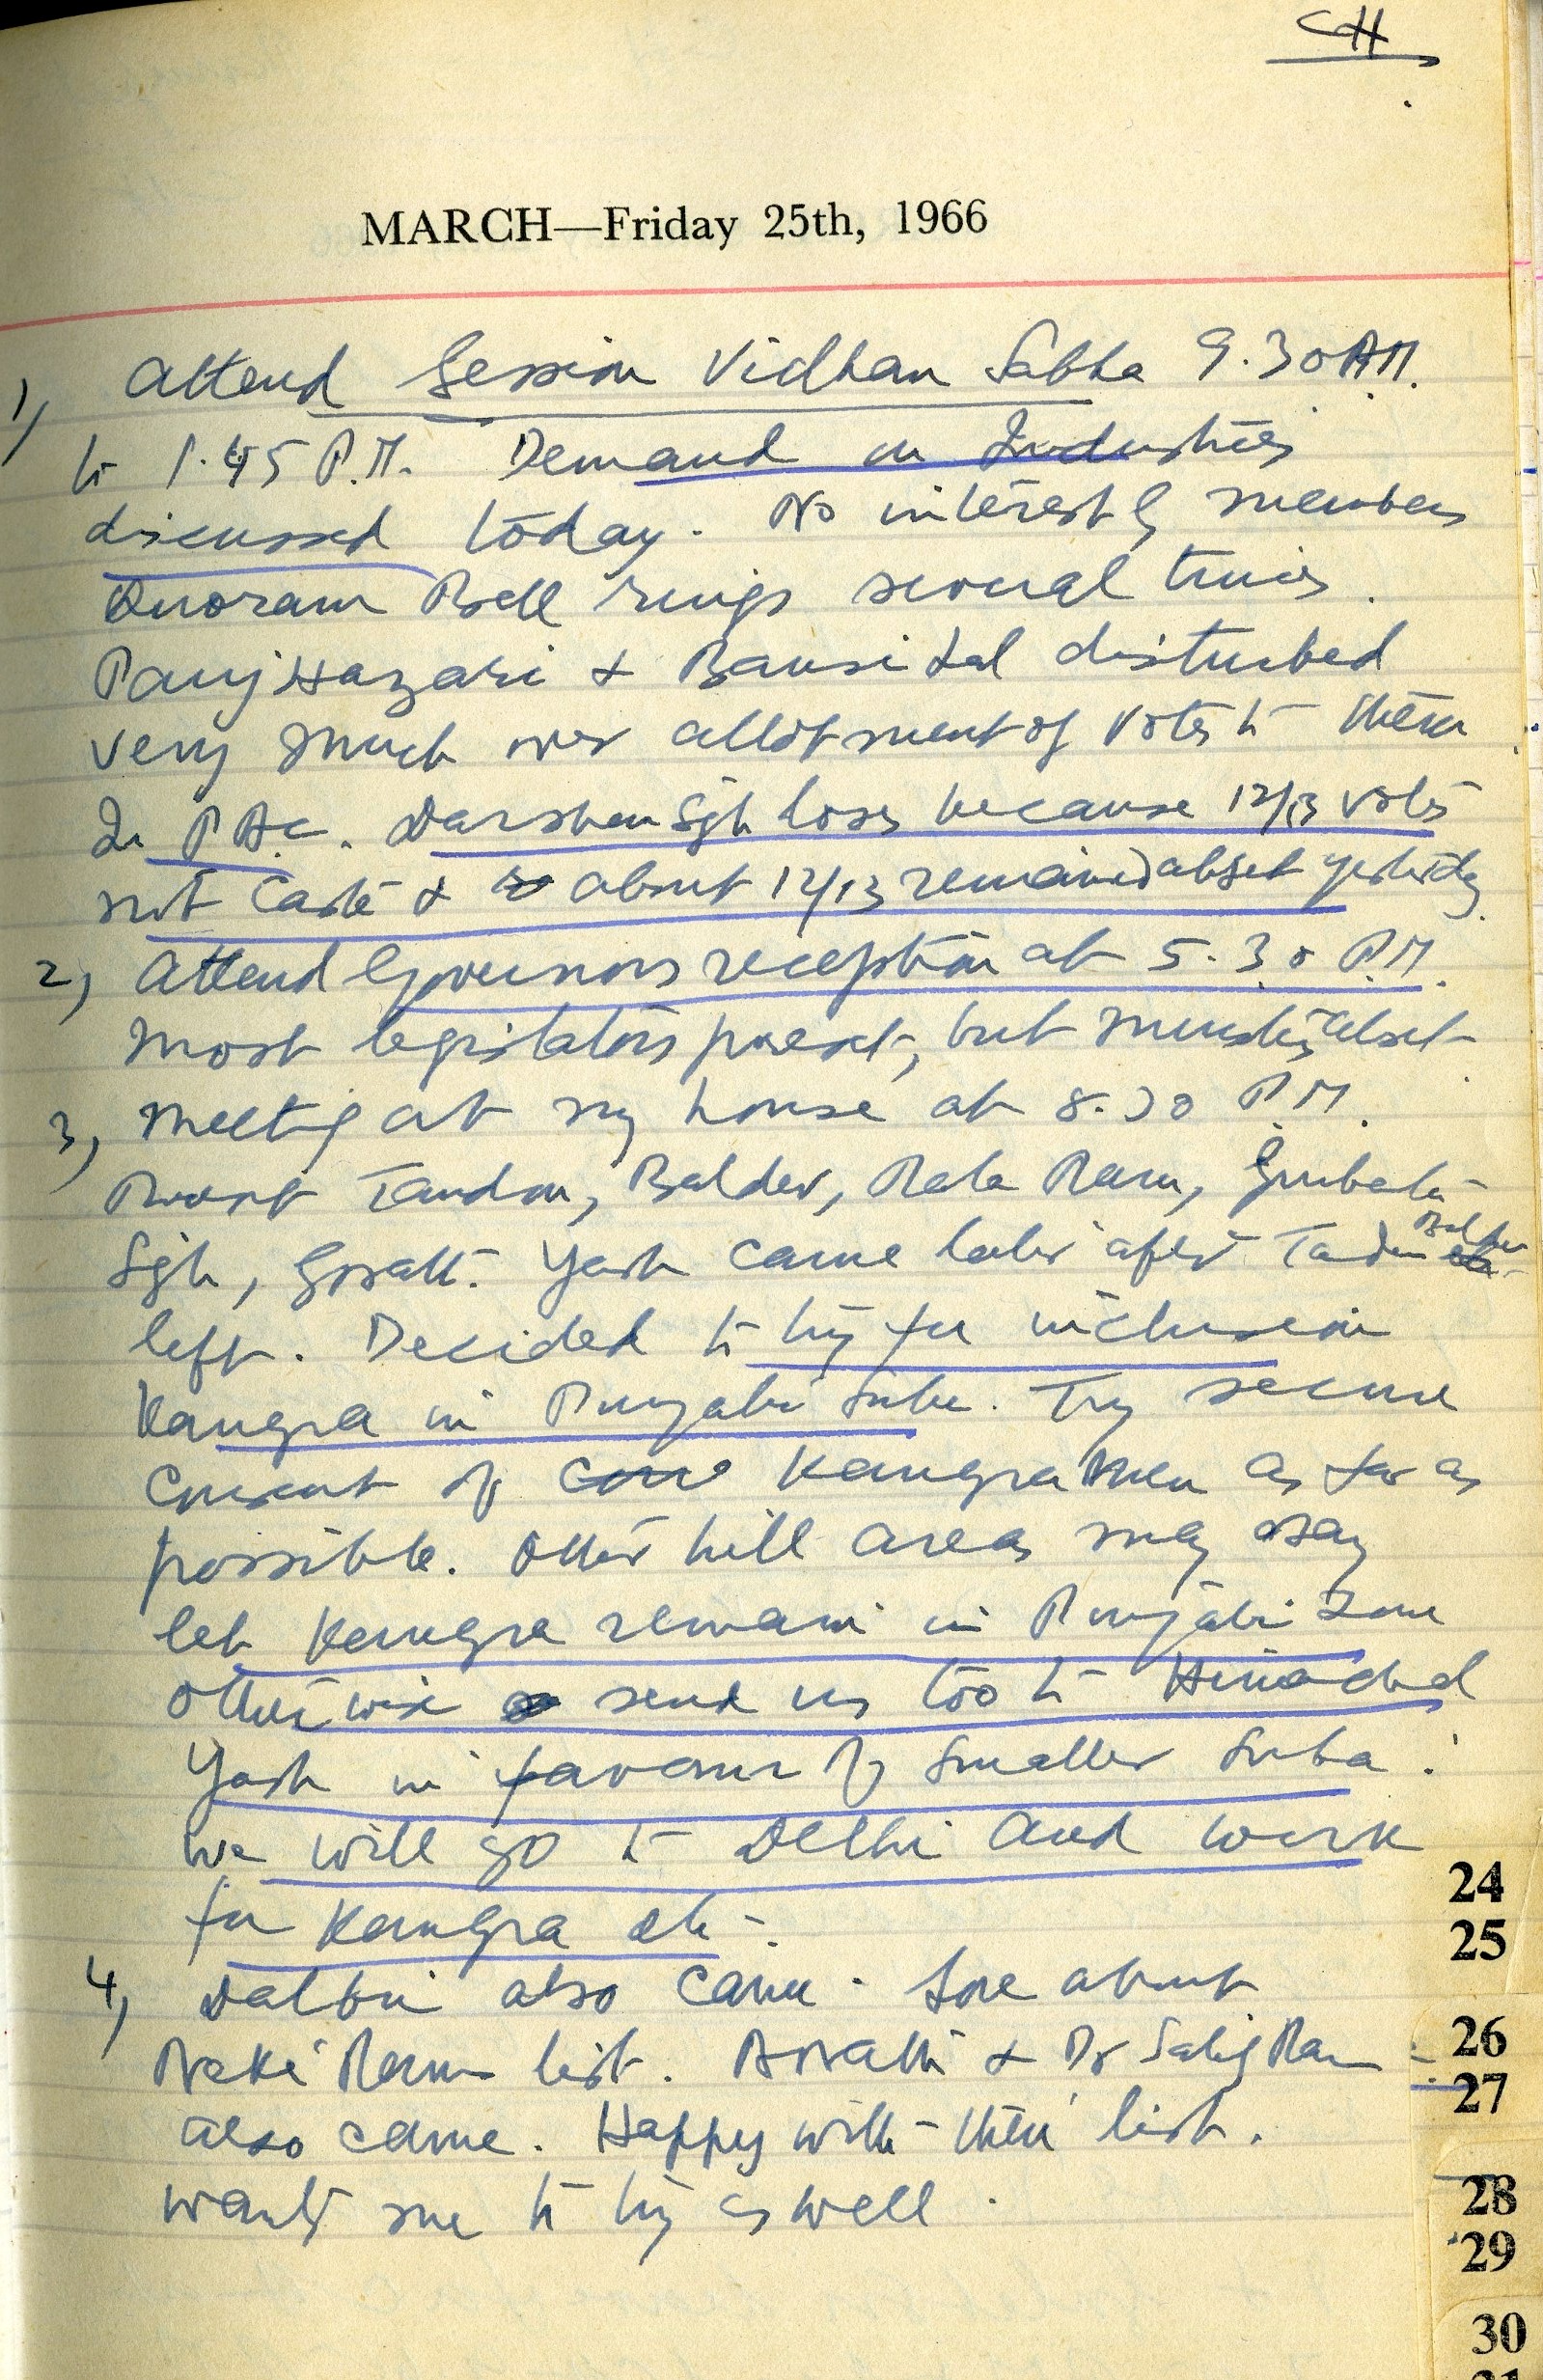 CH
MARCH—Friday 25th, 1966
1) Attend Session Vidhan Sabha 9.30 A.M.
to 1.45 P.M. Demand on Industries
discussed today. No interest by members
Quoram Bell rings several times.
Panj Hazari & Bansi Lal disturbed
very much over allotment of votes to them
In P.A.C. Darshan Sgh loses because 12/13 votes
not caste & about 12/13 remained abset yesterday.
2) Attend Governors reception at 5.30 P.M.
Most legislators presest, but abset
3) Meetig at my house at 8.30 P.M.
Tandon, Baldev, Rala Ram,
Sgh, Yash came later after Tadon
left. Decided to try for inclusion
Kangra in Punjabi Suba. Try secure
consent of Kangra Men as far as
possible. Other hill areas may say
let Kangra remain in Punjabi Zone
otherwise send us too to Himachal
Yash in favour of smaller Suba.
We will go to Delhi and work
for Kangra etc.
4) Dalbir also came. about
Ram list. & Dr Salig Ram
also came. Happy with their list.
Wants me to try as well.
24
25
26
27
28
29
30
31